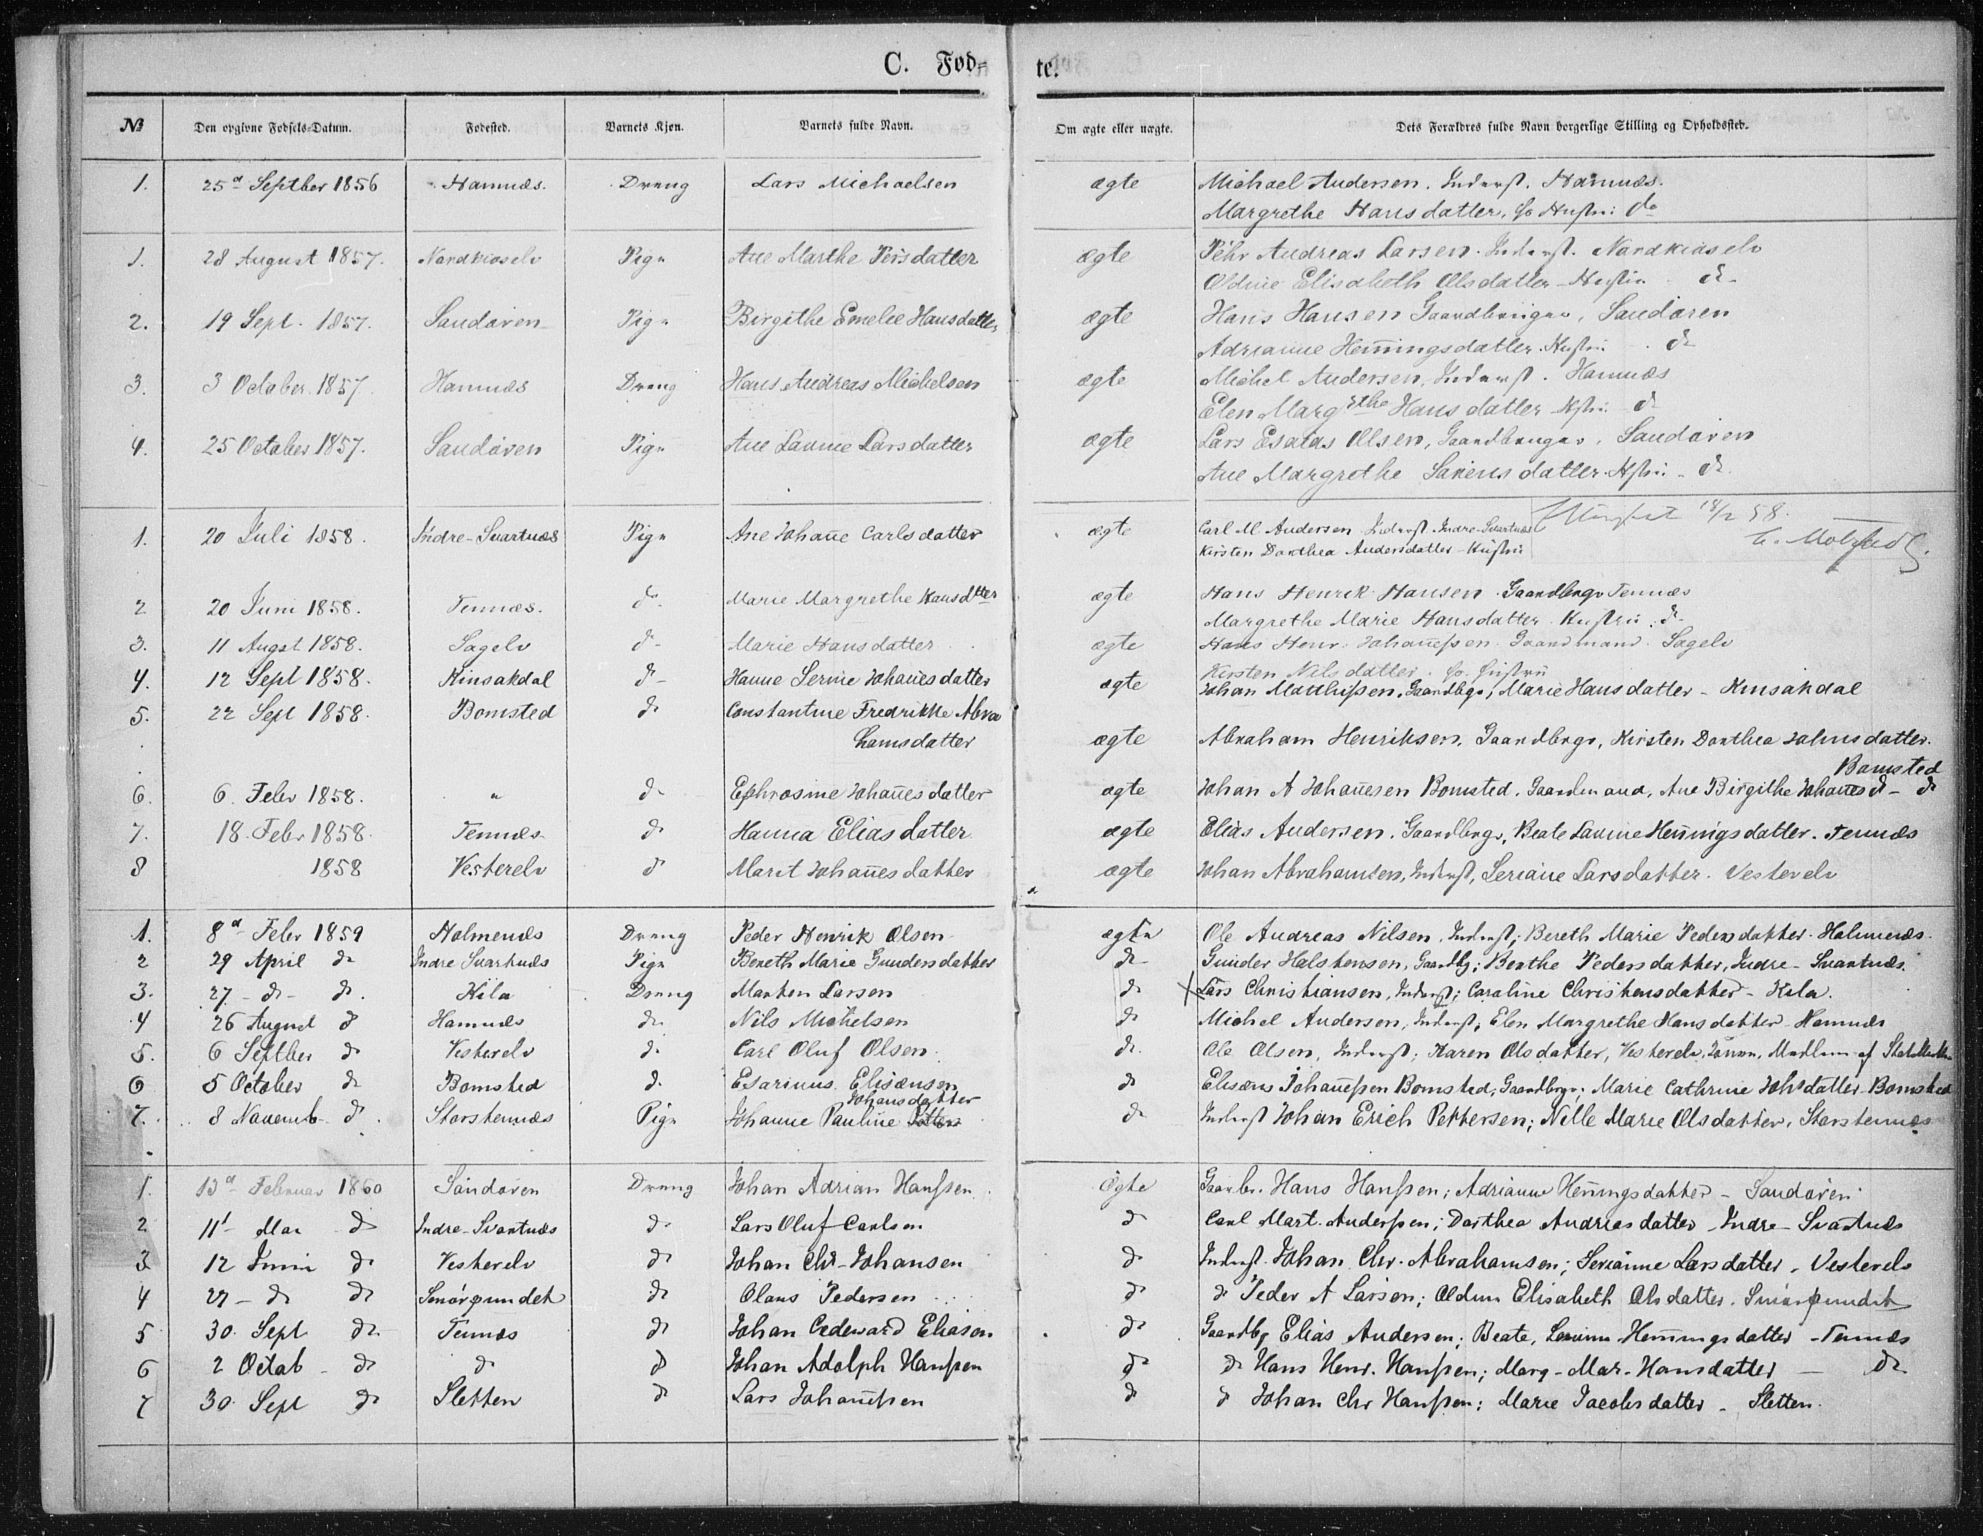 C. Fød-te.
№ Den opgivne Fødsels-Datum. Fødested. Barnets Kjøn. Barnets fulde Navn. Om ægte eller uægte. Dets Forældres fulde Navn borgerlige Stilling og Opholdssted.
1. 25d Septber 1856 Hamnæs. Dreng Lars Michaelsen ægte Michael Andersen. Inderst. Hamnæs.
Margrethe Hansdatter, Hustru do
1. 28 August 1857. Nordkioselv Pige Ane Marthe Persdatter ægte Pehr Andreas Larsen. Inderst. Nordkioselv
Oldine Elisabeth Olsdatter - Hustru d-
2. 19 Sept. 1857. Sandøren Pige Birgithe Emelie Hansdatter ægte Hans Hansen Gaardbruger, Sandøren
Adrianne Hem̅ingsdatter. Hustru d-
3. 3 October 1857 Hamnæs Dreng Hans Andreas Michelsen ægte Michel Andersen, Inderst. Hamnæs
Elen Margrthe Hansdatter Hstru d-
4. 25 October 1857. Sandøren Pige Ane Lavine Larsdatter ægte Lars Esaias Olsen, Gaardbruger, Sandøren
Ane Margrethe Sørensdatter Hstru - d-
18/2 58.
1. 20 Juli 1858. Indre-Svartnæs Pige Ane Johan̅e Carlsdatter ægte Carl M Andersen Inderst Indre-Svartnæs
Kirsten Dorthea Andersdatter - Hustru
2 20 Juni 1858. Tennæs. d- Marie Margrethe Hansdtter ægte Hans Henrik Hansen Gaardbrgr Tennæs
Margrethe Marie Hansdatter Hustru d-
3. 11 Augst 1858. Sagelv d- Marie Hansdatter ægte Hans Henr. Johan̅essen Gaardmand Sagelv
Kirsten Nilsdatter. Hustru
4. 12 Sept 1858. Kinsakdal d- Hanne Serine Johan̅esdatter ægte Johan Matthissen, Gaardbgr, Marie Hansdatter - Kinsakdal
5. 22 Sept 1858. Bomsted d- Constantine Fredrikke Abra
hamsdatter ægte Abraham Henriksen, Gaardbrgr, Kirsten Dorthea Johnsdatter.
Bomsted
6. 6. Febr 1858. " d- Ephrosine Johan̅esdatter ægte Johan A Johan̅esen Bomsted, Gaardmand, Ane Birgithe Johan̅esd - d-
7. 18. Febr 1858. Tennæs d- Hanna Eliasdatter ægte Elias Andersen, Gaardbrgr, Beate Lavine Hem̅ingsdatter. Tennæs
8 1858 Vesterelv d- Marit Johan̅esdatter ægte Johan Abrahamsen, Inderst, Seriane Larsdatter. Vesterelv
1. 8d Febr 1859 Holmenæs Dreng Peder Henrik Olsen ægte Ole Andreas Nilsen, Inderst; Bereth Marie Pedersdatter. Holmenæs.
2 29 April d- Indre Svartnæs Pige Bereth Marie Gundersdatter d- Gunder Halstensen, Gaardbg; Berthe Pedersdatter, Indre-Svartnæs.
3. 27 - d - d. Kila Dreng Morten Larsen d- X Lars Christiansen, Inderst; Caroline Christensdatter - Kila.
4 26 August d Hamnæs d- Nils Michelsen d- Michel Andersen, Inderst; Elen Margrethe Hansdatter Hamnæs
5. 6 Septber d- Vesterelv d- Carl Oluf Olsen d- Ole Olsen, Inderst; Karen Olsdatter, Vesterelv, Medlem af
6 5 October d- Bomsted d- Esarinus Elisæusen d- Elisæus Johan̅essen Bomsted, Gaardbrgr; Marie Cathrine Johsdatter Bomsted
Johansdatter
7. 8 Novemb d. Storstennæs Pige Johanne Pauline d Inderst Johan Erich Pettersen; Nille Marie Olsdatter, Storstennæs
1. 13d Februar 1860 Sandøren Dreng Johan Adrian Hanssen Ægte Gaardbr. Hans Hanssen; Adrianne Hen̅ingsdatter - Sandøren
2 11t Mai d- Indre-Svartnæs d- Lars Oluf Carlsen d- Carl Mart. Anderssen; Dorthea Andreasdatter Indre-Svartnæs
3 12 Junii d- Vesterelv d- Johan Chr-Johansen d- Inderst Johan Chr. Abrahamsen; Serianne Larsdatter - Vesterelv
4 27 - d- d- d- Olaus Pedersen d- d- Peder A Larsen; Oldine Elisabeth Olsdatter.
5 30. Sept d- Tennæs d- Johan Cedeward Eliasen d- Gaardbg Elias Andersen; Beate Hem̅ingsdatter - Tennæs
6 2 Octob - d- d- d- Johan Adolph Hanssen d- d- Hans Henr. Hanssen; Marg-Mar-Hansdatter — d-
7 30 Sept d- Sletten d- Lars Johan̅essen d- d Johan Chr Hanssen; Marie Jacobsdatter - Sletten.